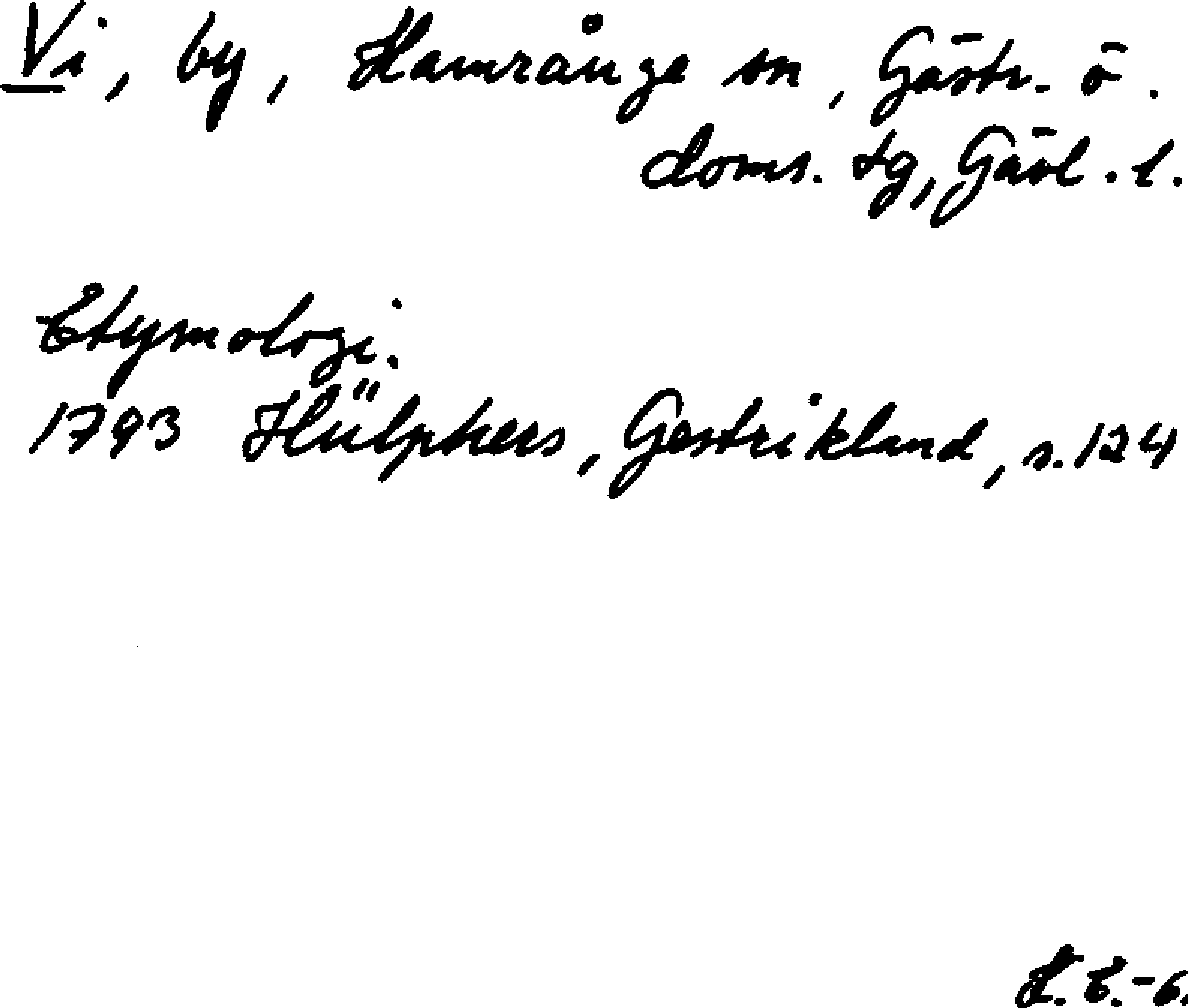 Vi, by, Hamrånge sn, Gästr. ö.
doms. tg, Gävl. l.
Etymologi.
1793 Hülphers, Gestrikland, s. 124